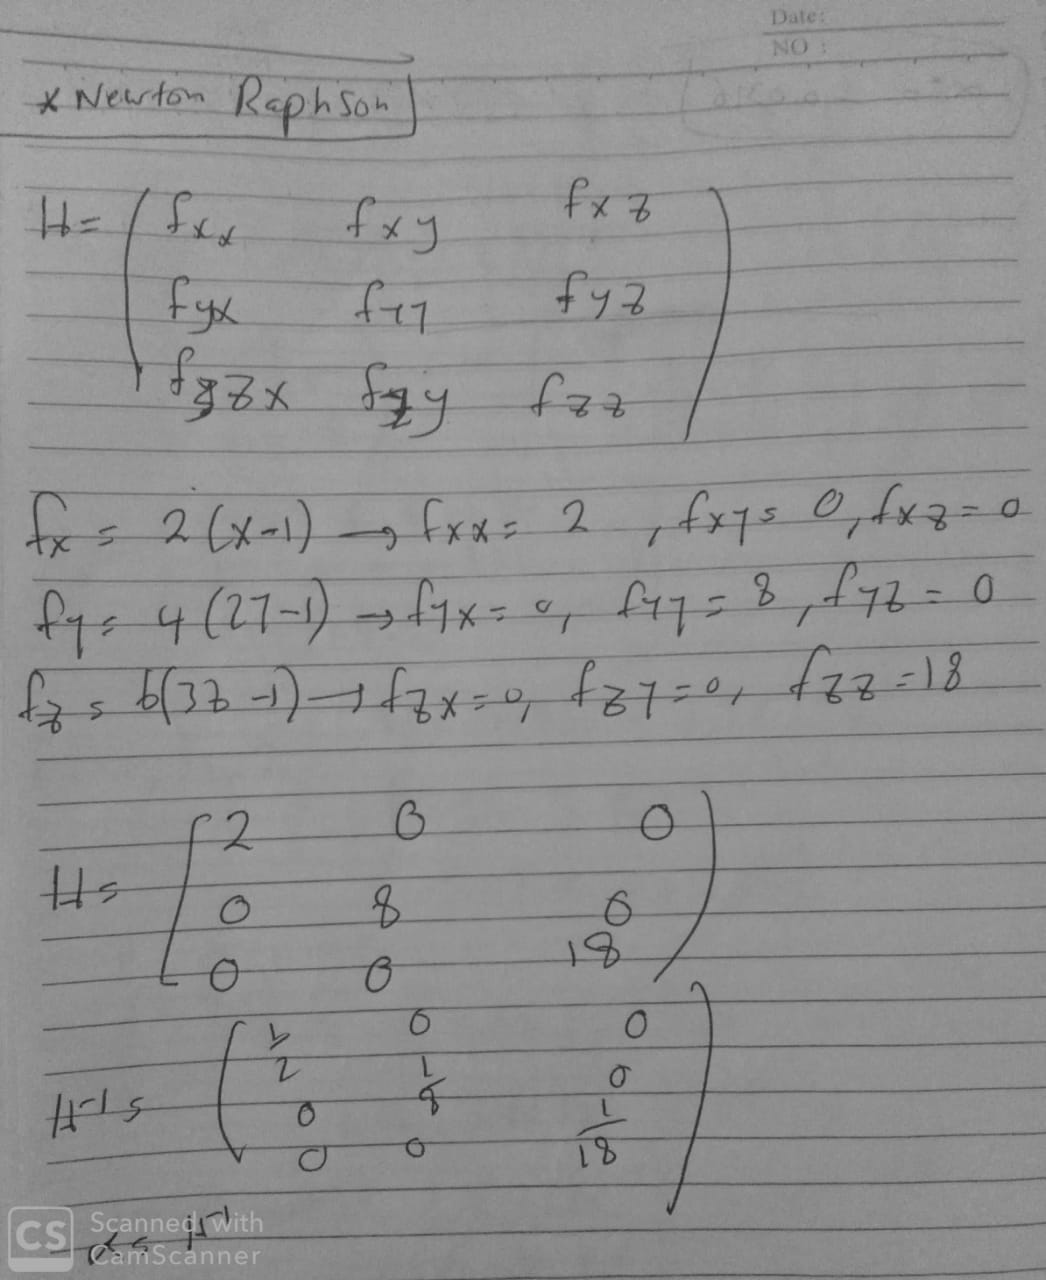 Date:
NO :
x Newton Raphson
H= ( fxx fxy fxz
fyx fyy fyz
fzx fzy fzz )
fx = 2(x-1) → fxx = 2 , fxy = 0, fxz = 0
fy = 4(2y-1) → fyx = 0, fyy = 8, fyz = 0
fz = 6(3z-1) → fzx = 0, fzy = 0, fzz = 18
H = [ 2 0 0
0 8 0
0 0 18 )
H⁻¹ = ( 1/2 0 0
0 1/8 0
0 0 1/18 )
α = H⁻¹
CS Scanned with
CamScanner